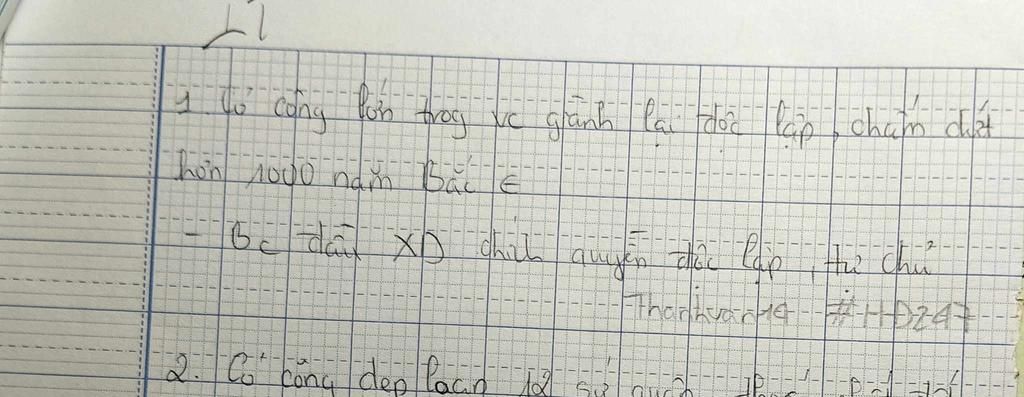 1. Có công lớn trog vc giành lại độc lập, chấm dứt
hơn 1000 năm Bắc
- Bc đầu XD chíh quyền độc lập, tự chủ
#HD247
2. Có công dẹp loạn 12 sứ quân